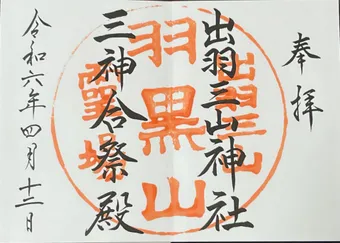 奉拝
出羽三山神社
三神合祭殿
令和六年四月十三日
出羽三山
羽黒山